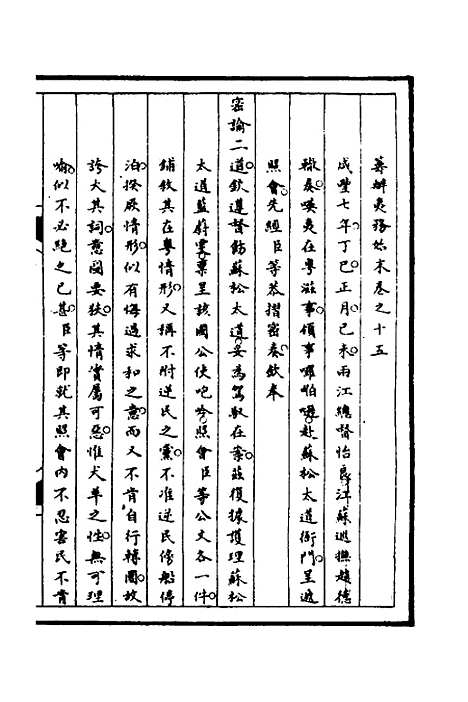 籌辦夷務始末卷之十五
咸豐七年丁巳正月己未兩江總督怡良江蘇巡撫趙德
轍奏嘆夷在粵滋事領事囉怕嗹赴蘇松太道衙門呈遞
照會先經臣等恭摺密奏欽奉
密諭二道欽遵督飭蘇松太道妥為駕馭在案茲復據護理蘇松
太道藍蔚雯稟呈該國公使咆呤照會臣等公文各一件
鋪敘其在粵情形又稱不附逆民之黨不准逆民傍船停
泊揆厥情形似有悔過求和之意而又不肯自行轉圜故
誇大其詞意圖要挾其情實屬可惡惟犬羊之性無可理
喻似不必絕之已甚臣等即就其照會內不忍害民不肯